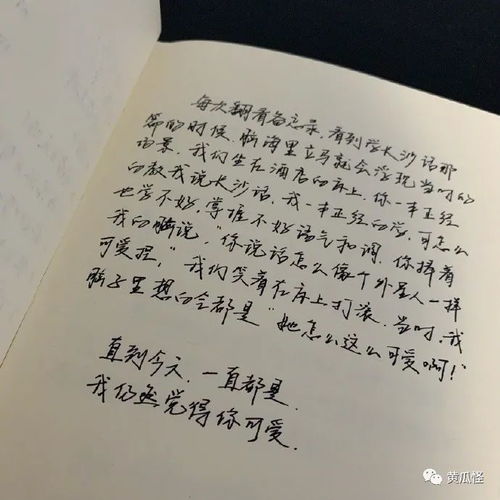 每次翻看备忘录，看到学长沙话那
篇的时候，脑海里立马就会浮现当时的
场景。我们坐在酒店的床上，你一本正经
的教我说长沙话，我一本正经的学，可怎么
也学不好，掌握不好语气和调，你掐着
我的脸说，“你说话怎么像个外星人一样
可爱捏，”我们笑着在床上打滚，当时，我
脑子里想的全都是“她怎么这么可爱啊！”
直到今天，一直都是，
我仍然觉得你可爱.
黄瓜怪